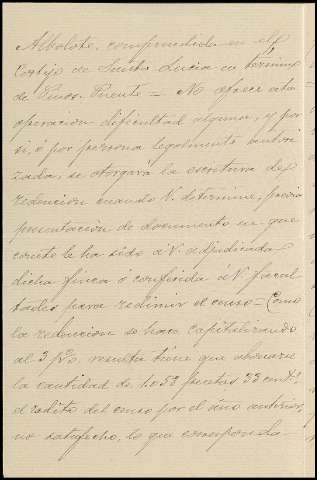 Albolote, comprendida en el
Cortijo de Santa Lucia en término
de Pinos Puente = No ofrece esta
operación dificultad alguna, y por
si, ó por persona legalmente autori-
zada, se otorgará la escritura de
redencion cuando V. determine, previa
presentación de documento en que
conste le ha sido á V. adjudicada
dicha finca ó conferida á V. facul-
tades para redimir el censo = Como
la redencion se hace capitalizando
al 3 p%. resulta tiene que abonar
la cantidad de 1.053 pesetas 33 centˢ.
el rédito del censo por el año anterior,
no satisfecho, lo que corresponda